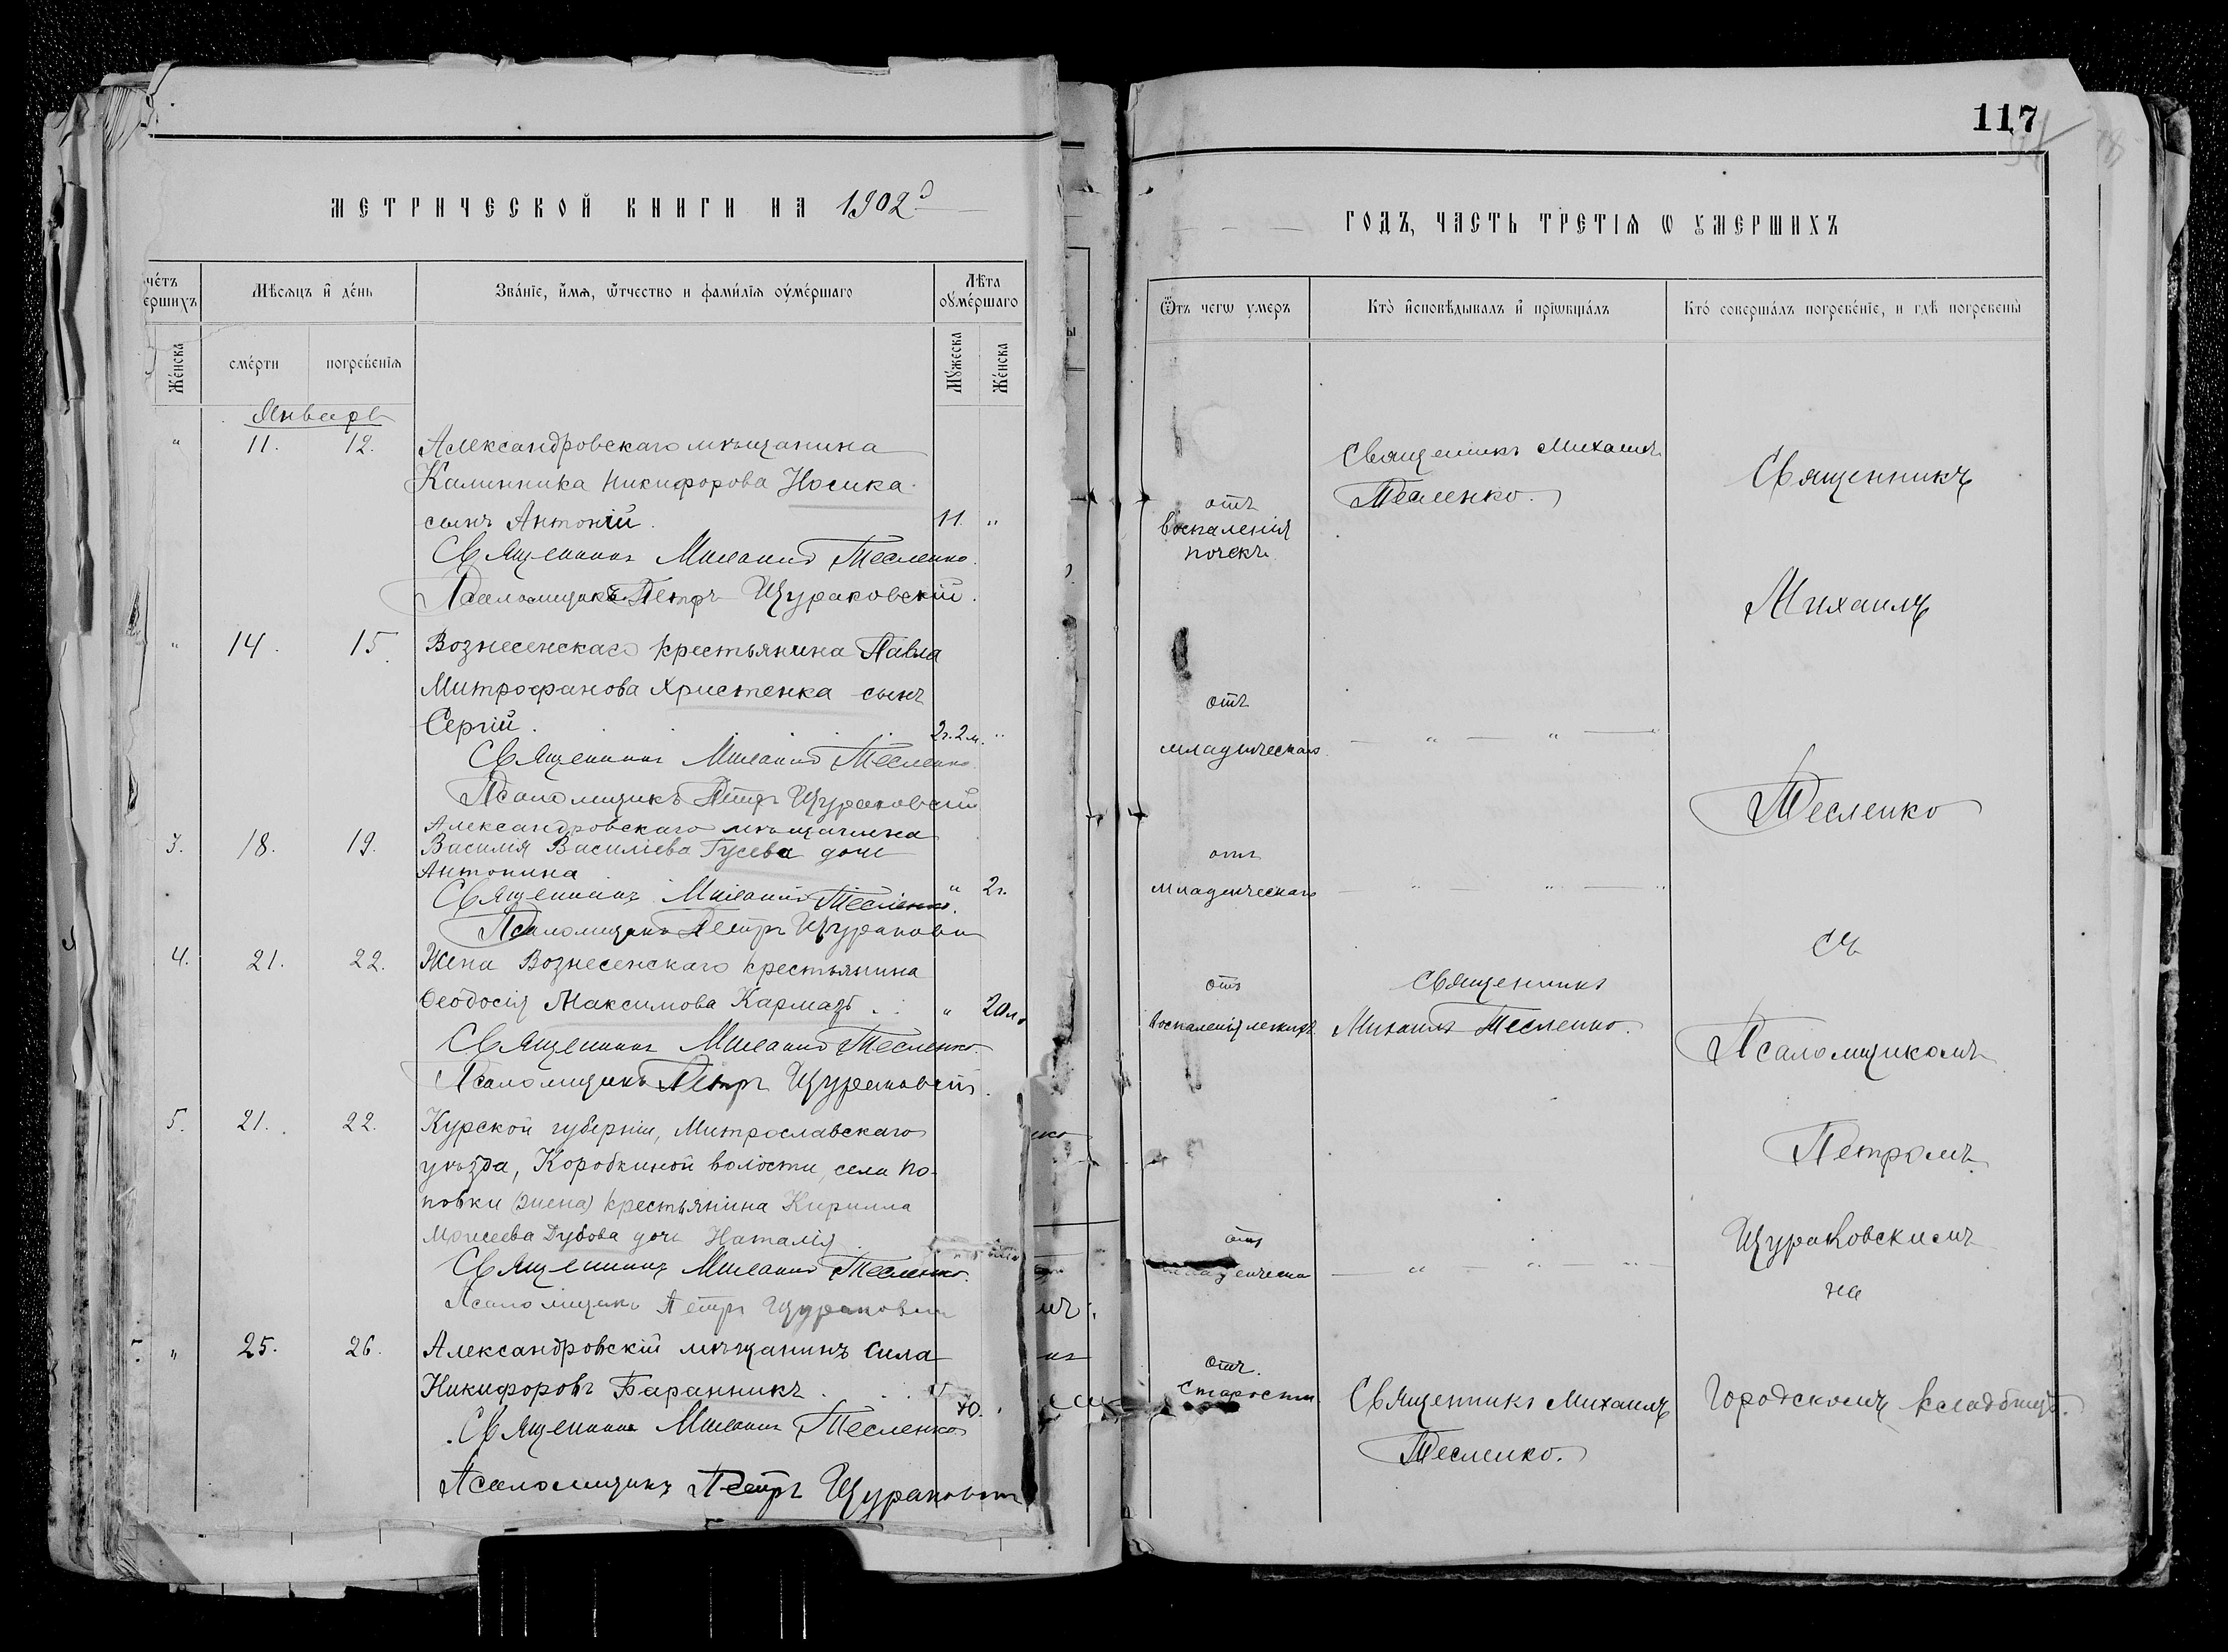 МЕТРИЧЕСКОЙ КНИГИ НА 1902
Мѣсяцъ и день
Званіе, имя, отчество и фамилія умершаго
Лѣта умершаго
Женска
смерти
погребенія
Мужеска
Женска
Январь
" 11. 12. Александровскаго мѣщанина
Калинника Никифорова Носика
сынъ Антоній. 11. "
Священникъ Михаилъ Тесленко.
Псаломщикъ Петръ Щураковскій.
" 14. 15. Вознесенскаго крестьянина Павла
Митрофанова Христенка сынъ
Сергій. 2г. 2м. "
Священникъ Михаилъ Тесленко.
Псаломщикъ Петръ Щураковскій
Александровскаго мѣщанина
3. 18. 19. Василія Василіева Гусева дочь
Антонина " 2г.
Священникъ Михаилъ Тесленко.
Псаломщикъ Петръ Щураковскій
4. 21. 22. Жена Вознесенскаго крестьянина
Ѳеодосія Максимова Кармазъ " 20
Священникъ Михаилъ Тесленко.
Псаломщикъ Петръ Щураковскій.
5. 21. 22. Курской губерніи, Митрославскаго
уѣзда, Коробкиной волости, села По-
повки крестьянина Кирилла
Моисеева Дубова дочь Наталія
Священникъ Михаилъ Тесленко.
Псаломщикъ Петръ Щураковскій
" 25. 26. Александровскій мѣщанинъ Сила
Никифоровъ Баранникъ. 70.
Священникъ Михаилъ Тесленко
Псаломщикъ Петръ Щураковскій
117
ГОДЪ, ЧАСТЬ ТРЕТІЯ Ѡ УМЕРШИХЪ
Ѿтъ чегѡ умеръ
Кто исповѣдывалъ и пріѡбщалъ
Кто совершалъ погребеніе, и гдѣ погребены
отъ
воспаленія
почекъ
Священникъ Михаилъ
Тесленко.
Священникъ
Михаилъ
отъ
младенческаго — " — " —
Тесленко
отъ
младенческаго — " — " — "
съ
отъ
воспаленія легкихъ
Священникъ
Михаилъ Тесленко.
Псаломщикомъ
Петромъ
Щураковскимъ
на
отъ
— " — " — "
отъ
старости
Священникъ Михаилъ
Тесленко.
Городскомъ кладбищѣ.